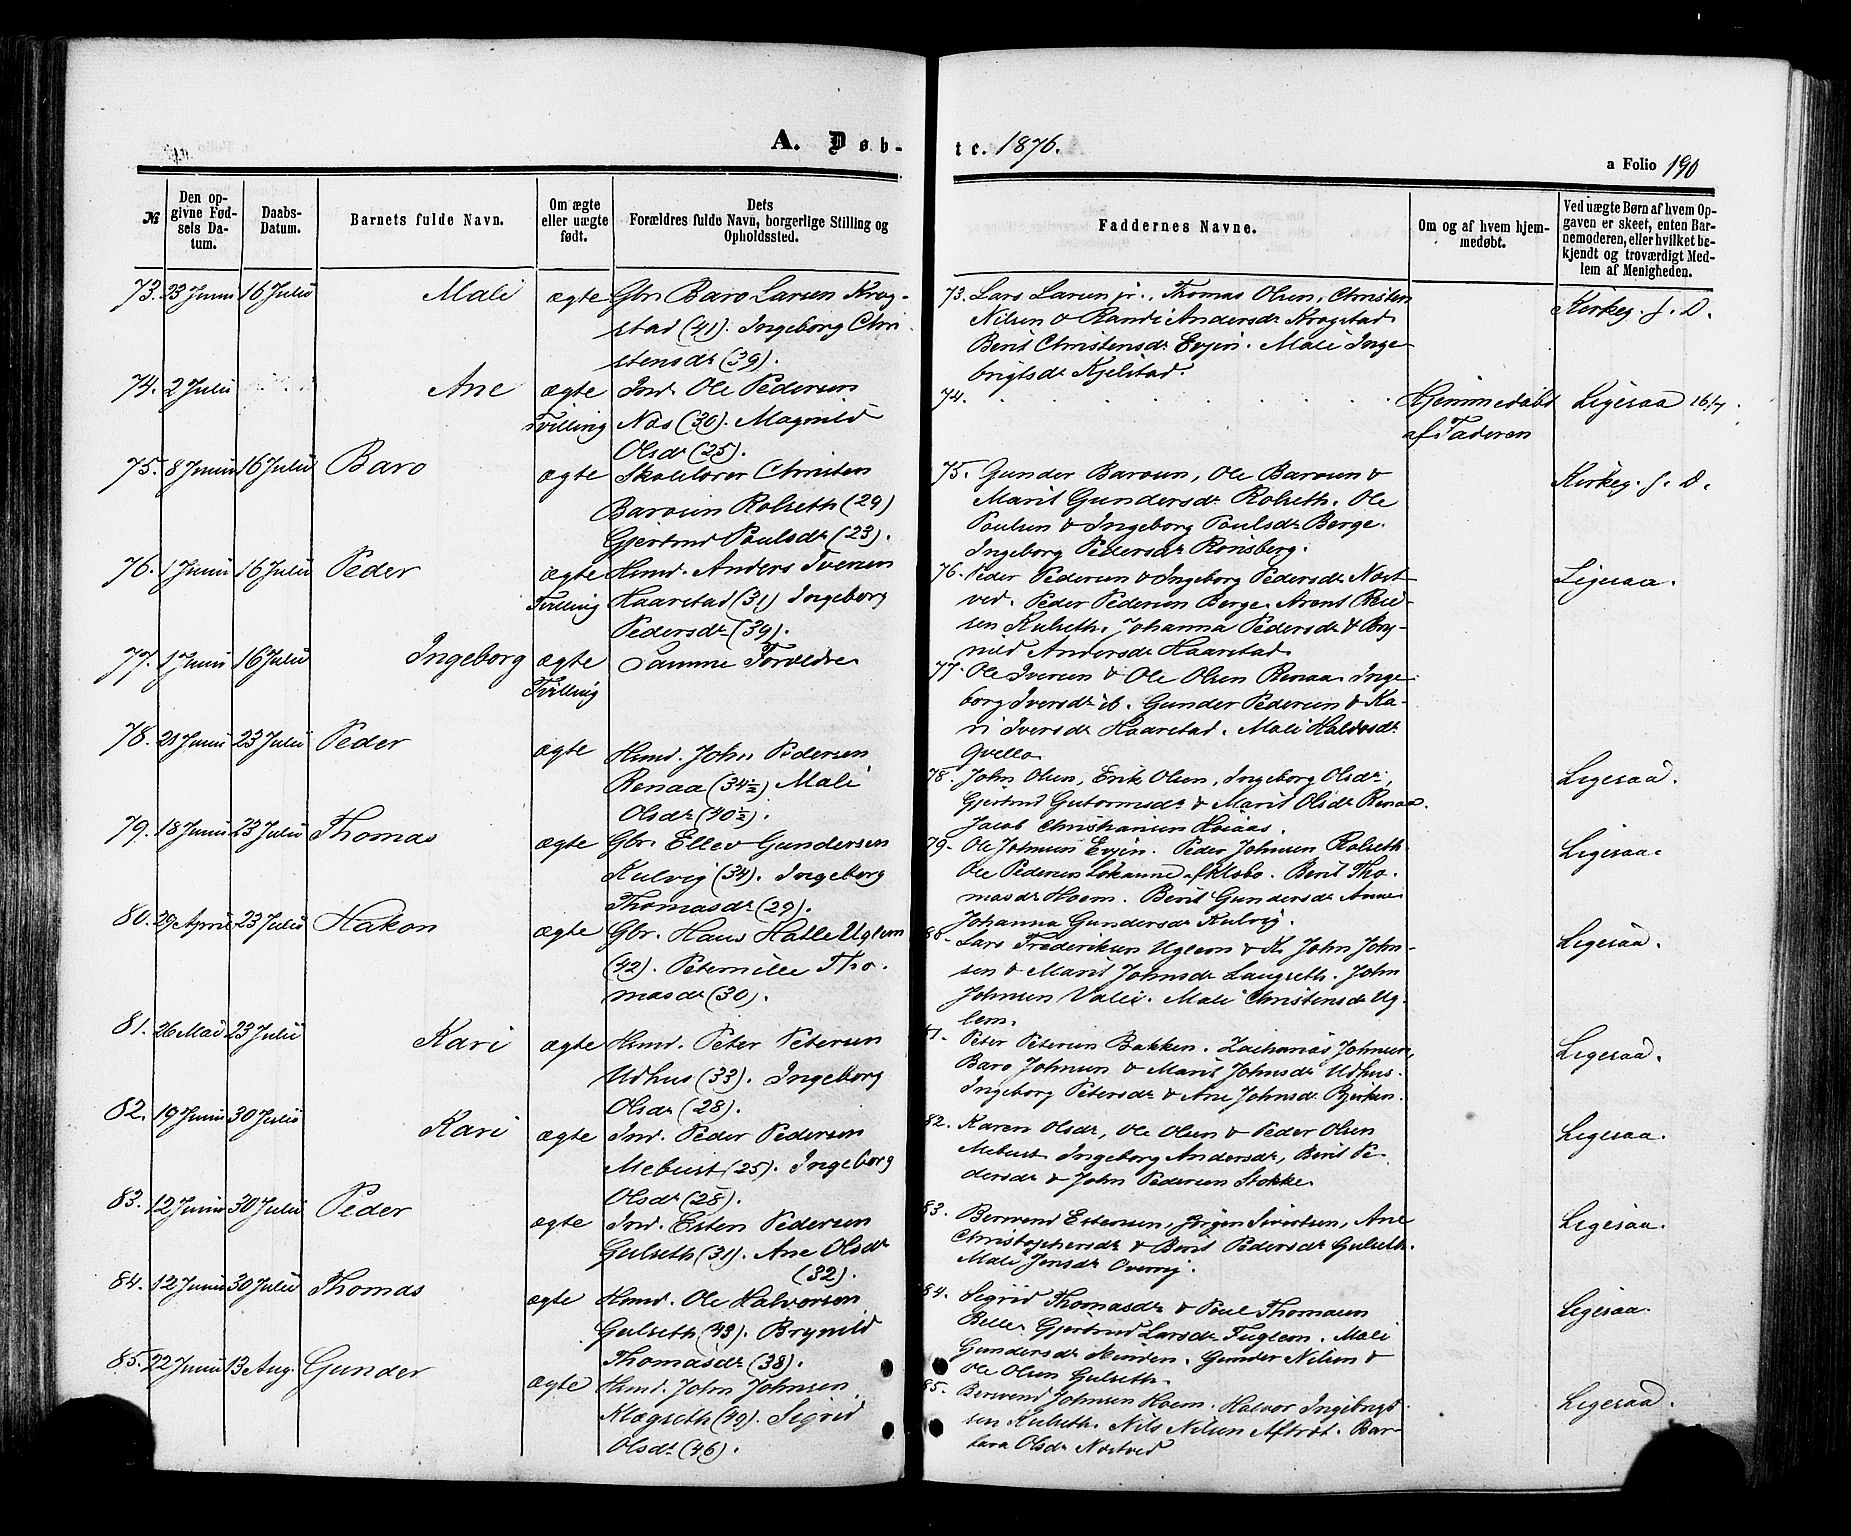 A. Døb-
te. 1876.
a Folio 190
№
Den op-
givne Fød-
sels Da-
tum.
Daabs-
Datum.
Barnets fulde Navn.
Om ægte
eller uægte
født.
Dets
Forældres fulde Navn, borgerlige Stilling og
Opholdssted.
Faddernes Navne.
Om og af hvem hjem-
medøbt.
Ved uægte Børn af hvem Op-
gaven er skeet, enten Bar-
nemoderen, eller hvilket be-
kjendt og troværdigt Med-
lem af Menigheden.
73. 23 Juni 16 Julii Mali ægte Gbr. Baro Larsen Krog-
stad (41). Ingeborg Chri-
stensdr (39).
73. Lars Larsen jr., Thomas Olsen, Christen
Nilsen & Randi Andersdr Krogstad
Berit Christensdr Evjen. Mali Inge-
brigtsdr Kjelstad.
Kirkeg. f. D.
74. 2 Julii Ane ægte Ind. Ole Pedersen
Tvilling Nos (30). Magnild
Olsdr (25).
74.
Hjemmedøbt
af Faderen
Ligesaa 16/7.
75. 8 Junii 16 Julii Baro ægte Skolelærer Christen
Barosen Rolseth (29)
Gjertrud Paulsdr (23).
75. Gunder Barosen, Ole Barosen &
Marit Gundersdr Rolseth. Ole
Paulsen & Ingeborg Paulsdr Berge.
Ingeborg Pedersdr Rønsberg.
Kirkeg. f. D.
76. 1 Junii 16 Julii Peder ægte Hsmd. Anders Iversen
Tvilling Haarstad (31) Ingeborg
Pedersdr (39).
76. Peder Pedersen & Ingeborg Pedersdr Nøst-
ved. Peder Pedersen Berge. Arent
sen Kulseth. Johanna Pedersdr & Bry-
nild Andersdr Haarstad.
Ligesaa.
77. 1 Junii 16 Julii Ingeborg ægte Samme Forældre
Tvilling
77. Ole Iversen & Ole Olsen Renaa. Inge-
borg Iversdr ib. Gunder Pedersen & Ka-
ri Iversdr Haarstad. Mali Haldosdr
Qvello.
78. 21 Junii 23 Julii Peder ægte Hsmd. John Pedersen
Renaa (34½) Mali
Olsdr (40½).
78. John Olsen, Erik Olsen, Ingeborg Olsdr,
Gjertrud Gutormsdr & Marit Olsdr Renaa.
Jacob Christiansen Hoiaas.
Ligesaa.
79. 18 Junii 23 Julii Thomas ægte Gbr. Ellev Gundersen
Kulvig (34). Ingeborg
Thomasdr (29).
79. Ole Johnsen Evjen. Peder Johnsen Rolseth.
Ole Pedersen af Klæbo. Berit Tho-
masdr Hoem. Berit Gundersdr
Johanna Gundersdr Kulvig.
Ligesaa.
80. 29 April 23 Julii Hakon ægte Gbr. Hans Halle Uglem
(42). Peternille Tho-
masdr (30).
80. Lars Frederiksen Uglem & K. John John-
sen & Marit Johnsdr Langseth. John
Johnsen Valli. Mali Christensdr Ug-
lem.
Ligesaa.
81. 26 Mai 23 Julii Kari ægte Hsmd. Peter Petersen
Udhus (33). Ingeborg
Olsdr (28).
81. Peter Petersen Bakken. Zacharias Johnsen,
Baro Johnsen & Marit Johnsdr Udhus.
Ingeborg Petersdr & Ane Johnsdr Bjerken.
Ligesaa.
82. 19 Junii 30 Julii Kari ægte Ind. Peder Pedersen
Mebust (25). Ingeborg
Olsdr (28).
82. Karen Olsdr, Ole Olsen & Peder Olsen
Mebust. Ingeborg Andersdr, Berit Pe-
dersdr & John Pedersen Stokke.
Ligesaa.
83. 12 Junii 30 Julii Peder ægte Ind. Esten Pedersen
Gulseth (31). Ane Olsdr
(32).
83. Berwend Estensen, Jörgen Sivertsen, Ane
Christophersdr & Berit Pedersdr Gulseth.
Mali Jensdr Overvig.
Ligesaa.
84. 12 Junii 30 Julii Thomas ægte Hsmd. Ole Halvorsen
Gulseth (43). Brynild
Thomasdr (38).
84. Sigrid Thomasdr & Paul Thomasen
Belle. Gjertrud Larsdr Fuglem. Mali
Gundersdr Moxnes. Gunder Nilsen &
Ole Olsen Gulseth.
Ligesaa.
85. 22 Junii 13 Aug. Gunder ægte Hsmd. John Johnsen
Klægseth (49). Sigrid
Olsdr (46).
85. Berwend Johnsen Hoem. Halvor Ingebrigt-
sen Kulseth. Nils Nilsen Aftret. Bar-
bara Olsdr Nøstved
Ligesaa.